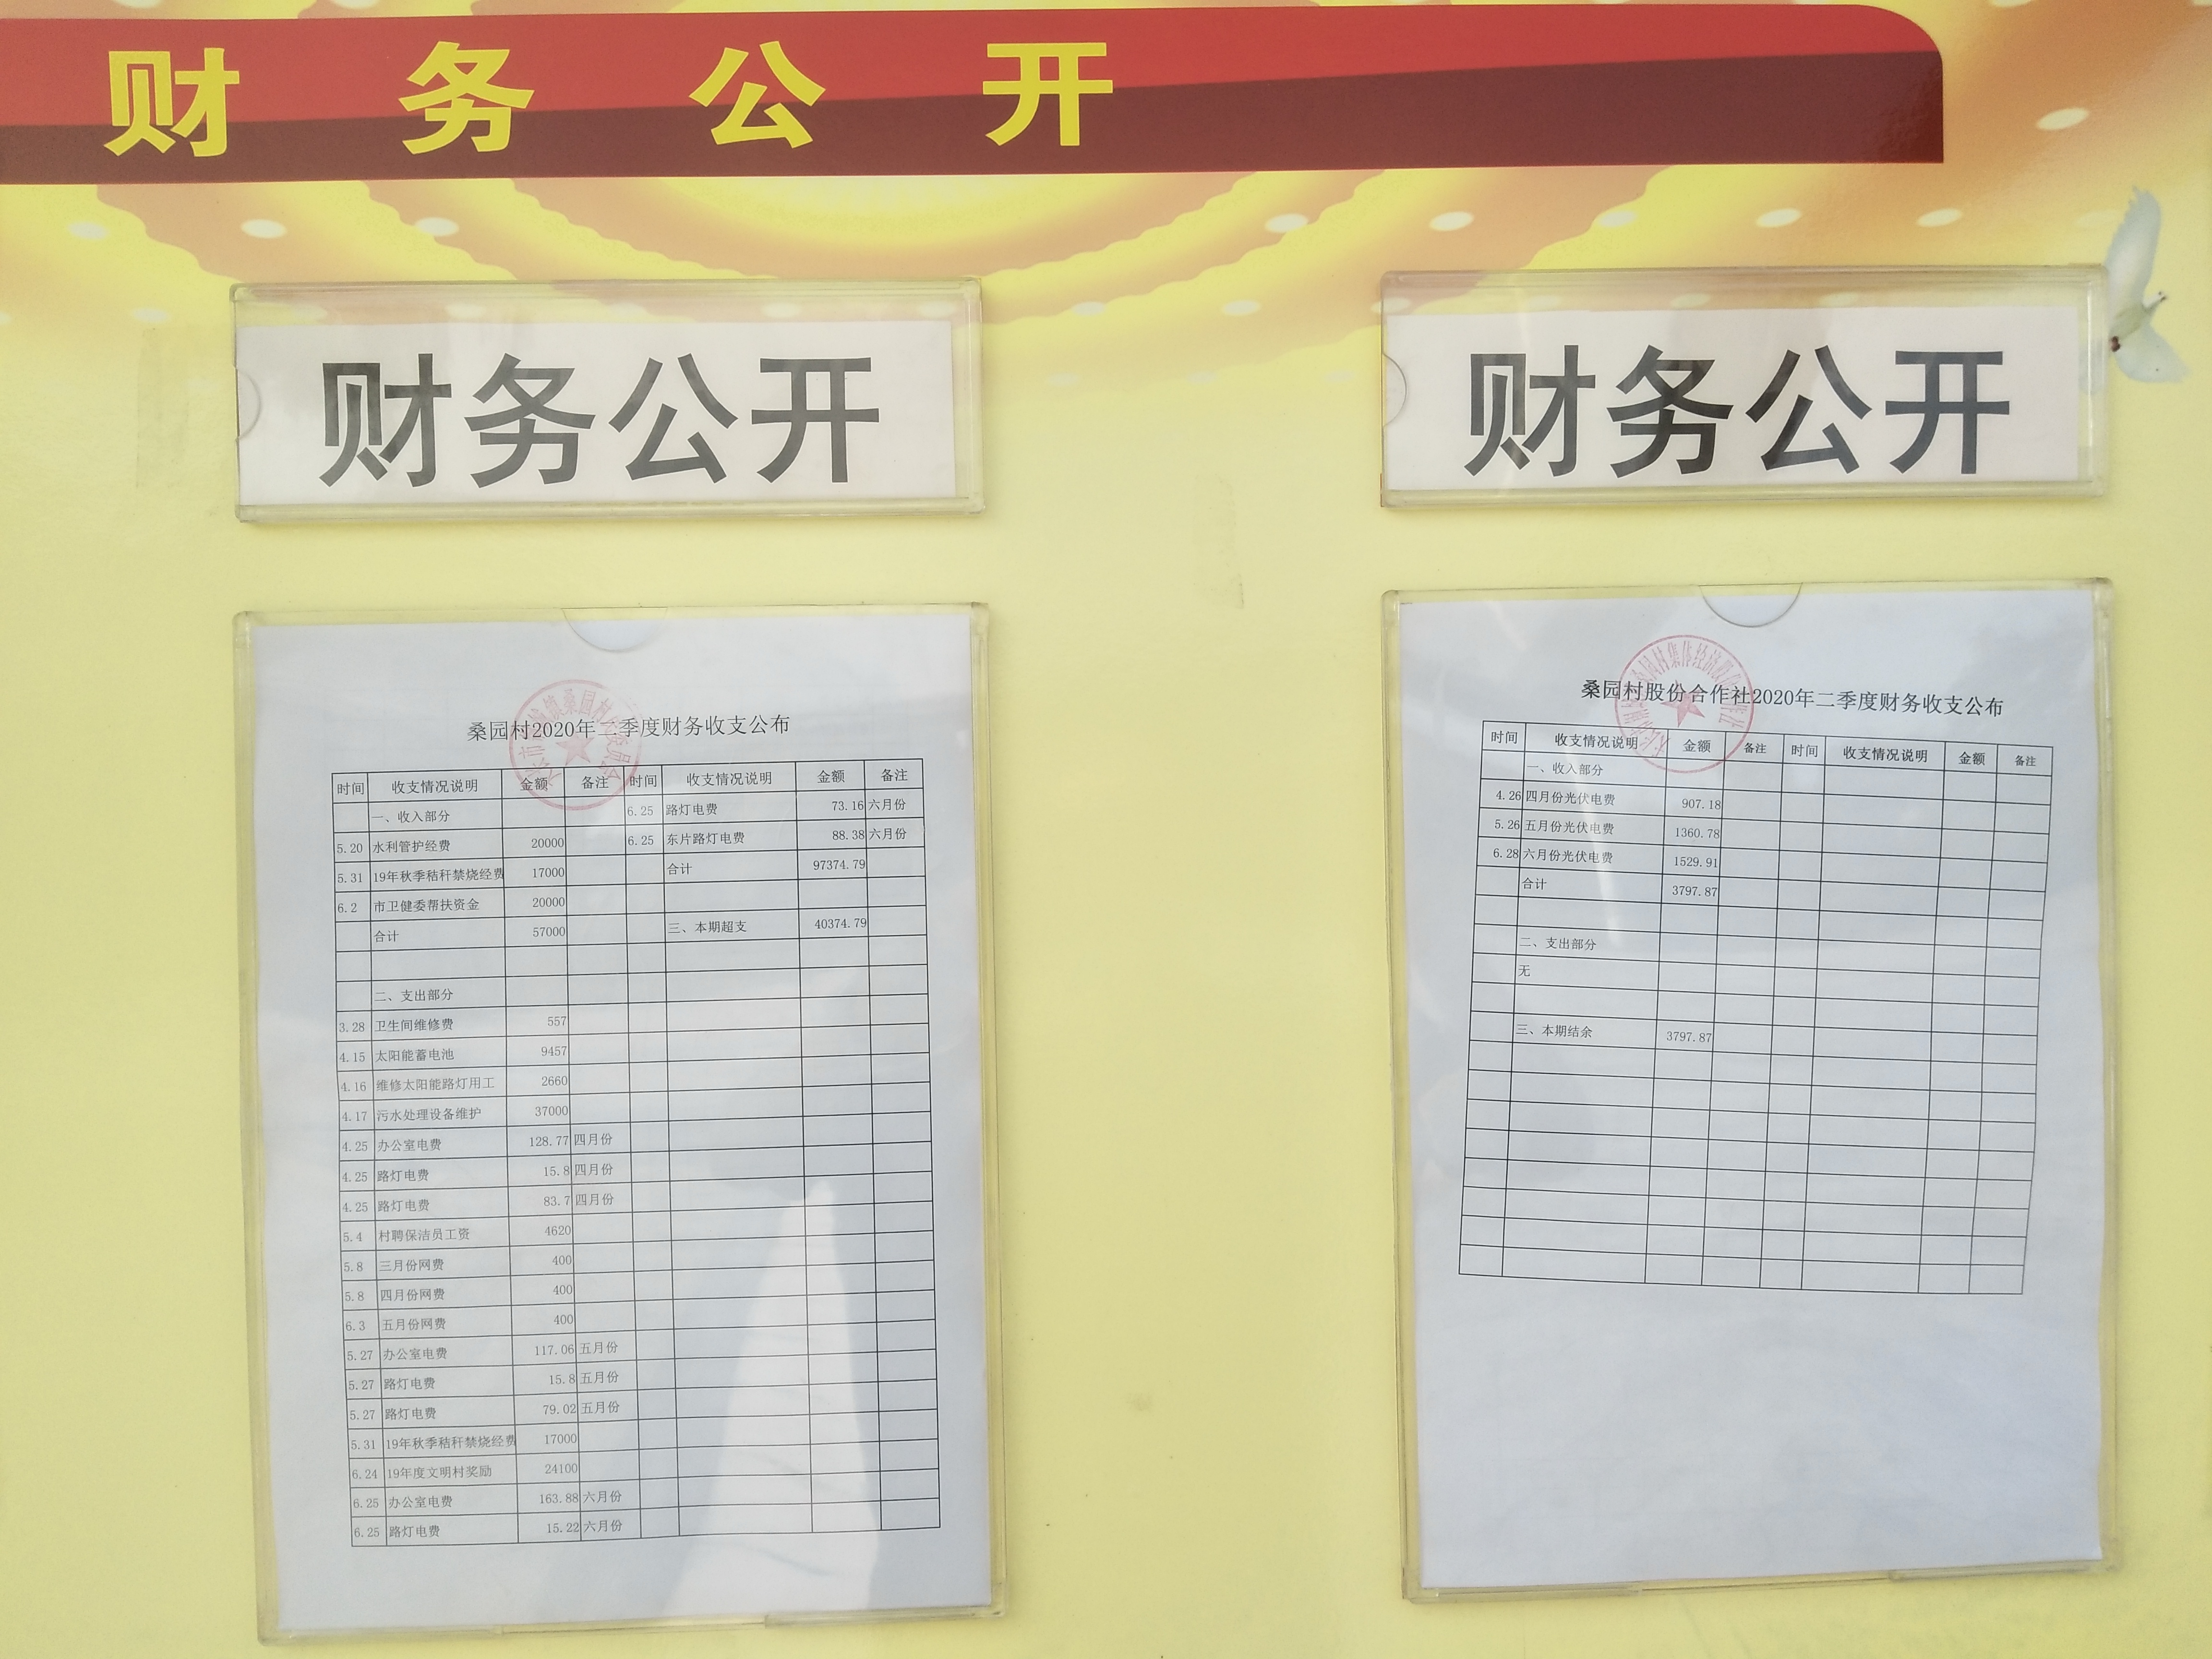 财务公开
财务公开
财务公开
桑园村2020年二季度财务收支公布
时间 收支情况说明 金额 备注 时间 收支情况说明 金额 备注
一、收入部分 6.25 路灯电费 73.16 六月份
5.20 水利管护经费 20000 6.25 东片路灯电费 88.38 六月份
5.31 19年秋季秸秆禁烧经费 17000 合计 97374.79
6.2 市卫健委帮扶资金 20000
合计 57000 三、本期超支 40374.79
二、支出部分
3.28 卫生间维修费 557
4.15 太阳能蓄电池 9457
4.16 维修太阳能路灯用工 2660
4.17 污水处理设备维护 37000
4.25 办公室电费 128.77 四月份
4.25 路灯电费 15.8 四月份
4.25 路灯电费 83.7 四月份
5.4 村聘保洁员工资 4620
5.8 三月份网费 400
5.8 四月份网费 400
6.3 五月份网费 400
5.27 办公室电费 117.06 五月份
5.27 路灯电费 15.8 五月份
5.27 路灯电费 79.02 五月份
5.31 19年秋季秸秆禁烧经费 17000
6.24 19年度文明村奖励 24100
6.25 办公室电费 163.88 六月份
6.25 路灯电费 15.22 六月份
桑园村股份合作社2020年二季度财务收支公布
时间 收支情况说明 金额 备注 时间 收支情况说明 金额 备注
一、收入部分
4.26 四月份光伏电费 907.18
5.26 五月份光伏电费 1360.78
6.28 六月份光伏电费 1529.91
合计 3797.87
二、支出部分
无
三、本期结余 3797.87